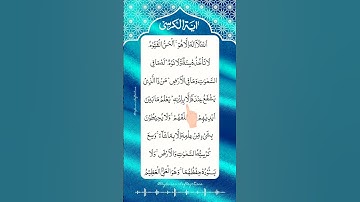 اٰیَةُ الْکُرْسِیْ
اَللّٰهُ لَاۤ اِلٰهَ اِلَّا هُوَ ۚ اَلْحَیُّ الْقَیُّوْمُ
لَا تَاْخُذُهٗ سِنَةٌ وَّلَا نَوْمٌ ؕ لَهٗ مَا فِی
السَّمٰوٰتِ وَمَا فِی الْاَرْضِ ؕ مَنْ ذَا الَّذِیْ
یَشْفَعُ عِنْدَهٗۤ اِلَّا بِاِذْنِهٖ ؕ یَعْلَمُ مَا بَیْنَ
اَیْدِیْهِمْ خَلْفَهُمْ ۚ وَلَا یُحِیْطُوْنَ
بِشَیْءٍ مِّنْ عِلْمِهٖۤ اِلَّا بِمَا شَآءَ ۚ وَسِعَ
کُرْسِیُّهُ السَّمٰوٰتِ وَالْاَرْضَ ۚ وَلَا
یَـُٔوْدُهٗ حِفْظُهُمَا ۚ وَهُوَ الْعَلِیُّ الْعَظِیْمُ